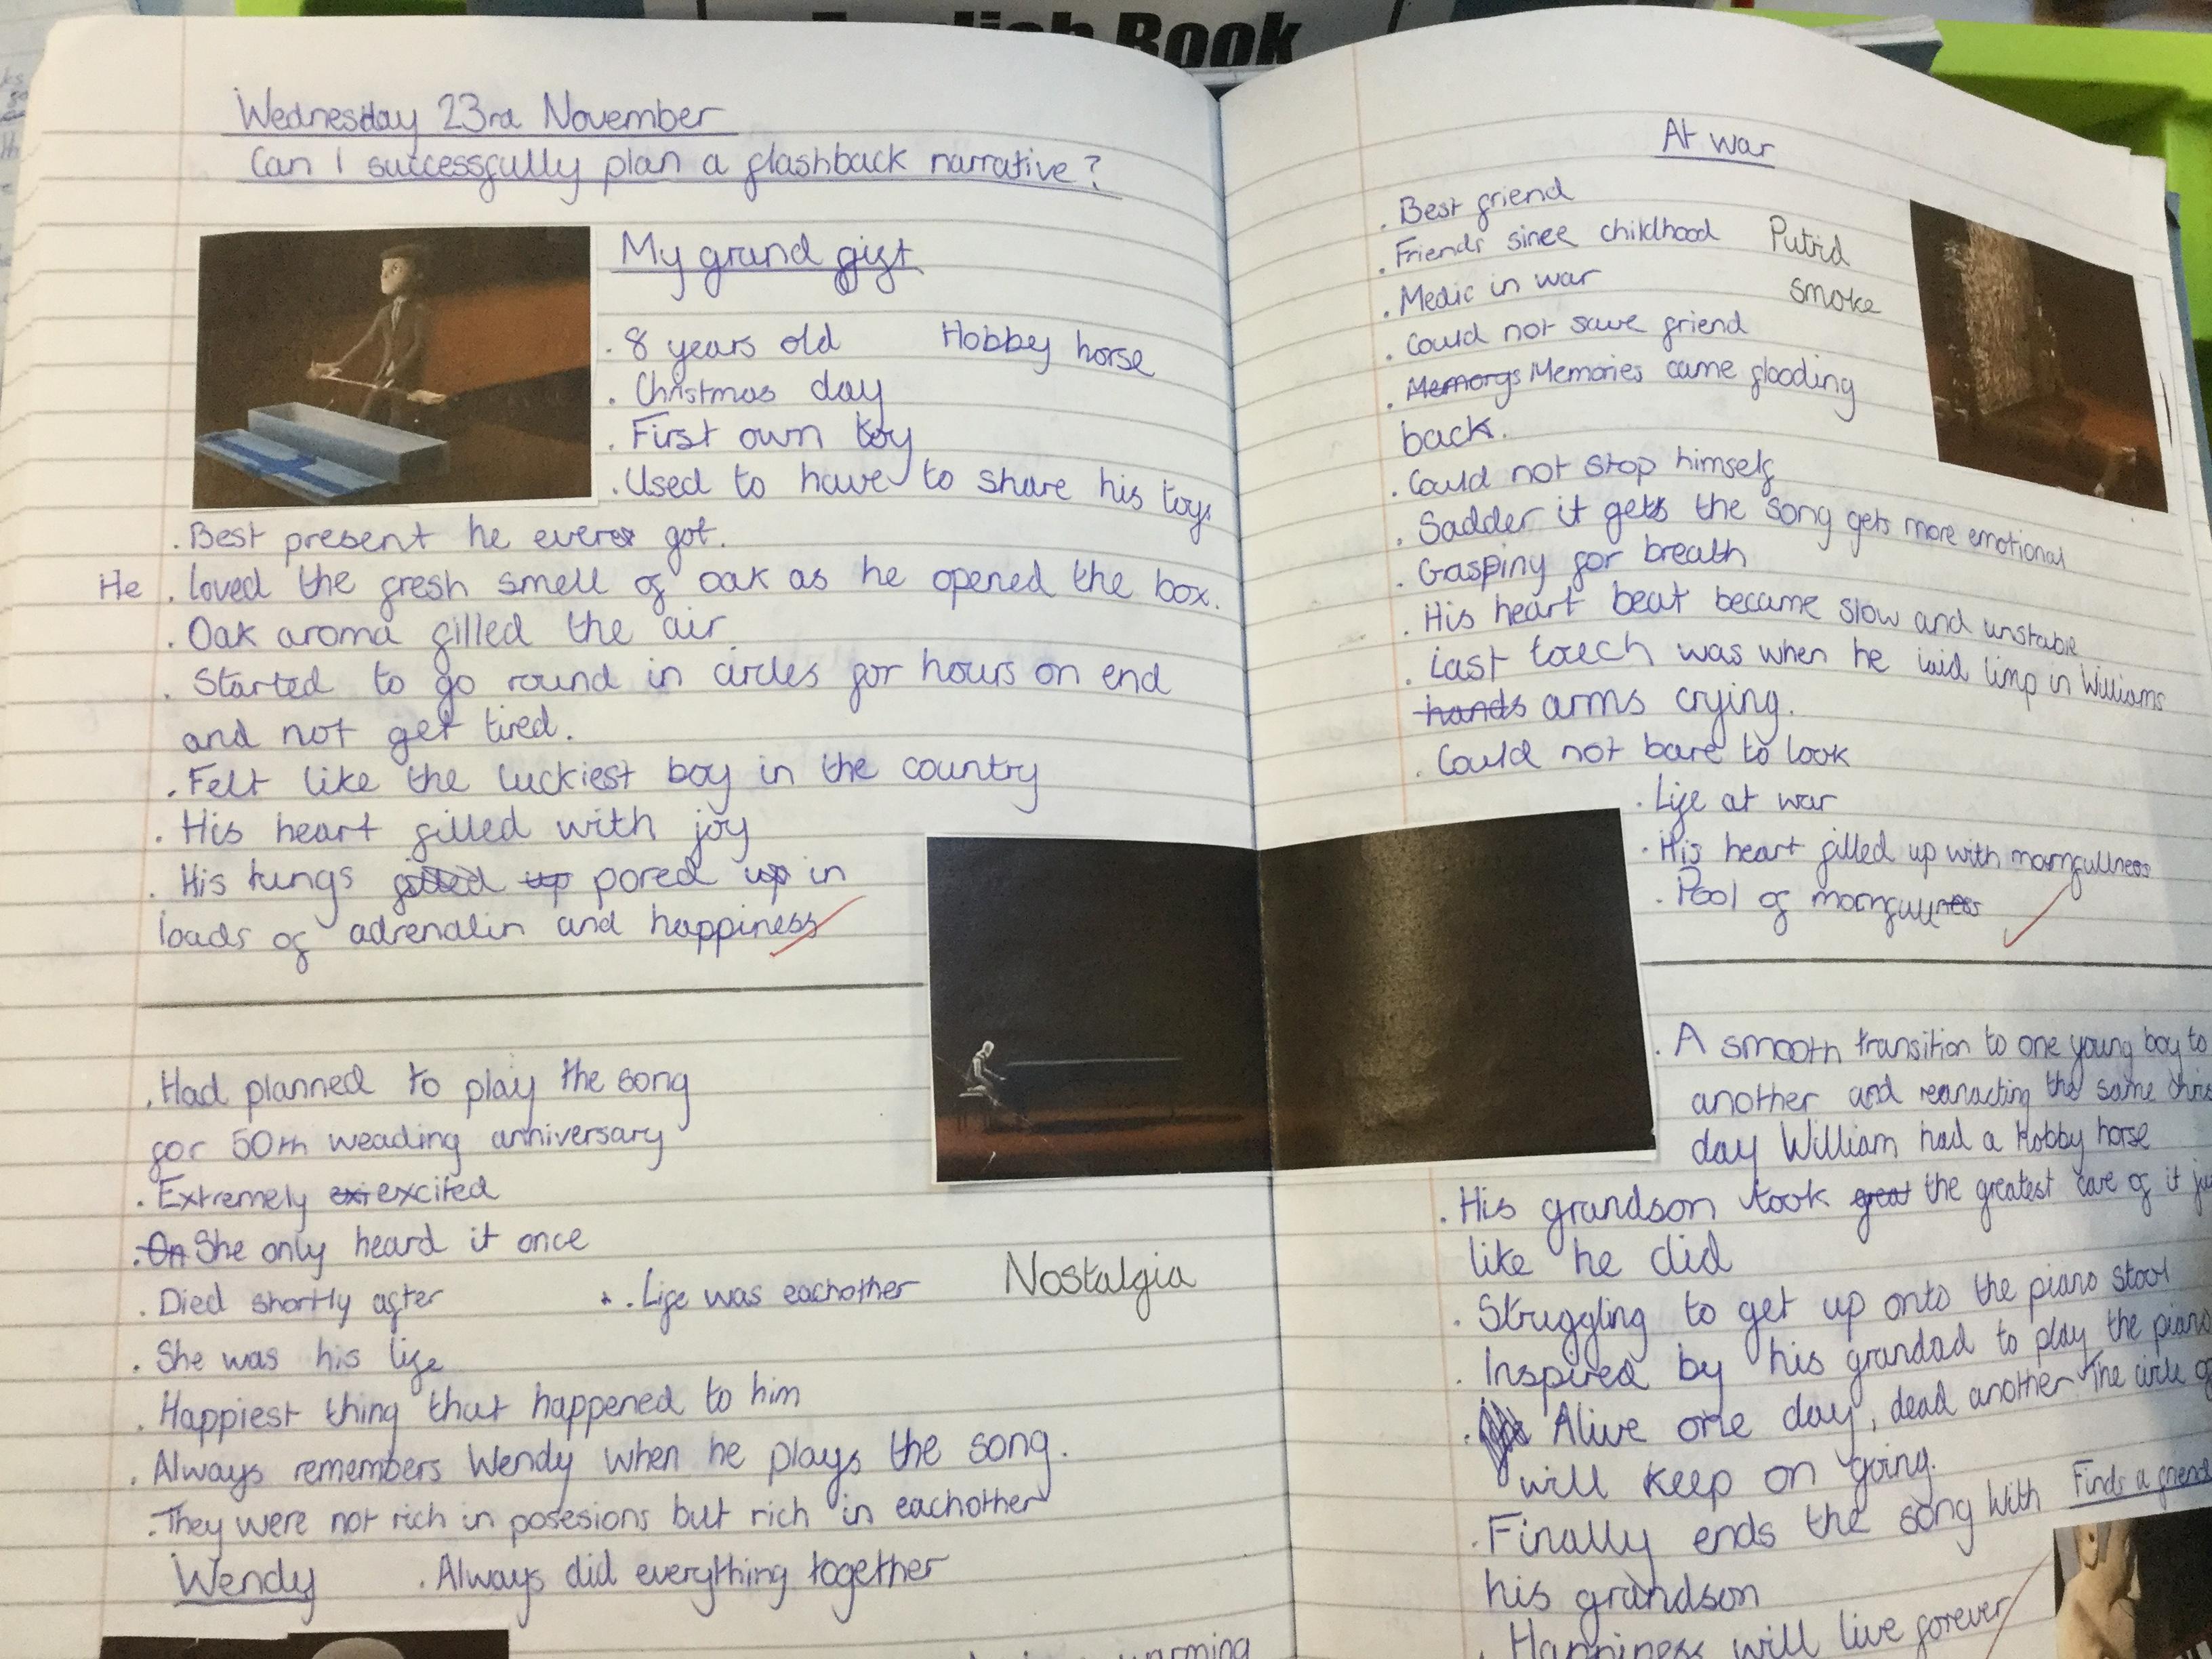 Book
Wednesday 23rd November
Can I successfully plan a flashback narrative?
My grand gift
. 8 years old Hobby horse
. Christmas day
. First own toy
. Used to have to share his toys
. Best present he ever got.
He . loved the fresh smell of oak as he opened the box.
. Oak aroma filled the air
. Started to go round in circles for hours on end
and not get tired.
. Felt like the luckiest boy in the country
. His heart filled with joy
. His lungs filled up pored up in
loads of adrenalin and happiness
. Had planned to play the song
for 50th weading anniversary
. Extremely exi excited
. On She only heard it once
. Died shortly after . Life was eachother Nostalgia
. She was his life
. Happiest thing that happened to him
. Always remembers Wendy when he plays the song.
. They were not rich in posesions but rich in eachother
Wendy . Always did everything together
warming
At war
. Best friend
. Friends since childhood Putrid
. Medic in war smoke
. Could not save friend
. Memorys Memories came flooding
back.
. Could not stop himself
. Sadder it gets the song gets more emotional
. Gasping for breath
. His heart beat became slow and unstable
. Last touch was when he laid limp in Williams
hands arms crying.
. Could not bare to look
. Life at war
. His heart filled up with mornfullness
. Pool of mornfullness
. A smooth transition to one young boy to
another and reanacting the same
day William had a Hobby horse
. His grandson took great the greatest care of it
like he did
. Struggling to get up onto the piano stool
. Inspired by his grandad to play the piano
. Alive one day, dead another The circle
will keep on going.
. Finally ends the song with Finds a friend
his grandson
. Happiness will live forever